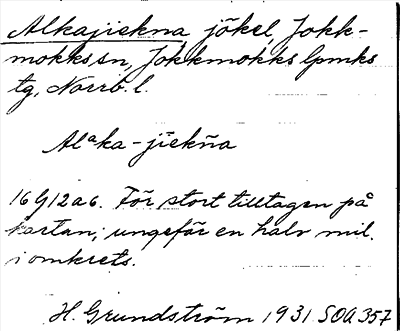 Alkajiekna, jökel, Jokk-
mokks sn, Jokkmokks lpmks
tg, Norrb. l.
Alᵃka-jiekŋa
16G12a6. För stort tilltagen på
kartan; ungefär en halv mil
i omkrets.
H. Grundström 1931 SOA 357